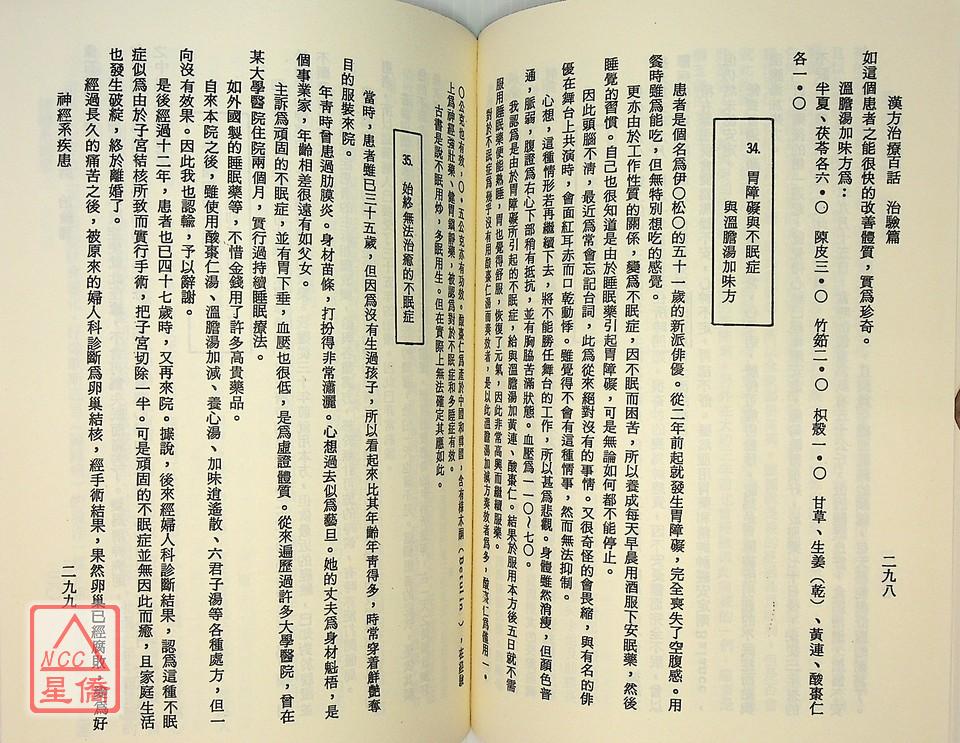 漢方治療百話　治驗篇
二九八
如這個患者之能很快的改善體質，實爲珍奇。
溫膽湯加味方爲：
半夏、茯苓各六・〇　陳皮三・〇　竹筎二・〇　枳殼一・〇　甘草、生姜（乾）、黃連、酸棗仁
各一・〇
34.　胃障礙與不眠症
與溫膽湯加味方
患者是個名爲伊〇松〇的五十一歲的新派俳優。從二年前起就發生胃障礙，完全喪失了空腹感。用
餐時雖爲能吃，但無特別想吃的感覺。
更亦由於工作性質的關係，變爲不眠症，因不眠而困苦，所以養成每天早晨用酒服下安眠藥，然後
睡覺的習慣。自己也很知道是由於睡眠藥引起胃障礙，可是無論如何都不能停止。
因此頭腦不淸，最近爲常會忘記台詞，此爲從來絕對沒有的事情。又很奇怪的會畏縮，與有名的俳
優在舞台上共演時，會面紅耳赤而口乾動悸。雖覺得不會有這種情事，然而無法抑制。
心想，這種情形若再繼續下去，將不能勝任舞台的工作，所以甚爲悲觀。身體雖然消瘦，但顏色普
通，脈弱，腹證爲右心下部稍有抵抗，並有胸脇苦滿狀態。血壓爲一一〇～七〇。
我認爲是由於胃障礙所引起的不眠症，給與溫膽湯加黃連、酸棗仁。結果於服用本方後五日就不需
服用睡眠藥便能熟睡，胃也覺得舒服，恢復了元氣，因此非常高興而繼續服藥。
對於不眠症爲幾乎沒有用酸棗仁湯而奏效者，是以此溫膽湯加減方奏效者爲多，酸棗仁爲僅用一・
〇公克也有效，〇・五公克亦有功效。酸棗仁爲產於中國和韓國，含有樺木腦（Betulin），在經驗
上爲神經強壯藥、健胃鎭靜藥，被認爲對於不眠症和多睡症有效。
古書是說不眠用炒，多眠用生。但在實際上無法確定其應如此。
35.　始終無法治癒的不眠症
當時，患者雖已三十五歲，但因爲沒有生過孩子，所以看起來比其年齡年靑得多，時常穿着鮮艷奪
目的服裝來院。
年靑時曾患過肋膜炎。身材苗條，打扮得非常瀟灑。心想過去似爲藝旦。她的丈夫爲身材魁梧，是
個事業家，年齡相差很遠有如父女。
主訴爲頑固的不眠症，並有胃下垂，血壓也很低，是爲虛證體質。從來遍歷過許多大學醫院，曾在
某大學醫院住院兩個月，實行過持續睡眠療法。
如外國製的睡眠藥等，不惜金錢用了許多高貴藥品。
自來本院之後，雖使用酸棗仁湯、溫膽湯加減、養心湯、加味逍遙散、六君子湯等各種處方，但一
向沒有效果。因此我也認輸，予以辭謝。
是後經過十二年，患者也已四十七歲時，又再來院。據說，後來經婦人科診斷結果，認爲這種不眠
症似爲由於子宮結核所致而實行手術，把子宮切除一半。可是頑固的不眠症並無因此而癒，且家庭生活
也發生破綻，終於離婚了。
經過長久的痛苦之後，被原來的婦人科診斷爲卵巢結核，經手術結果，果然卵巢已經腐敗，爲好
神經系疾患
二九九
NCC
星僑